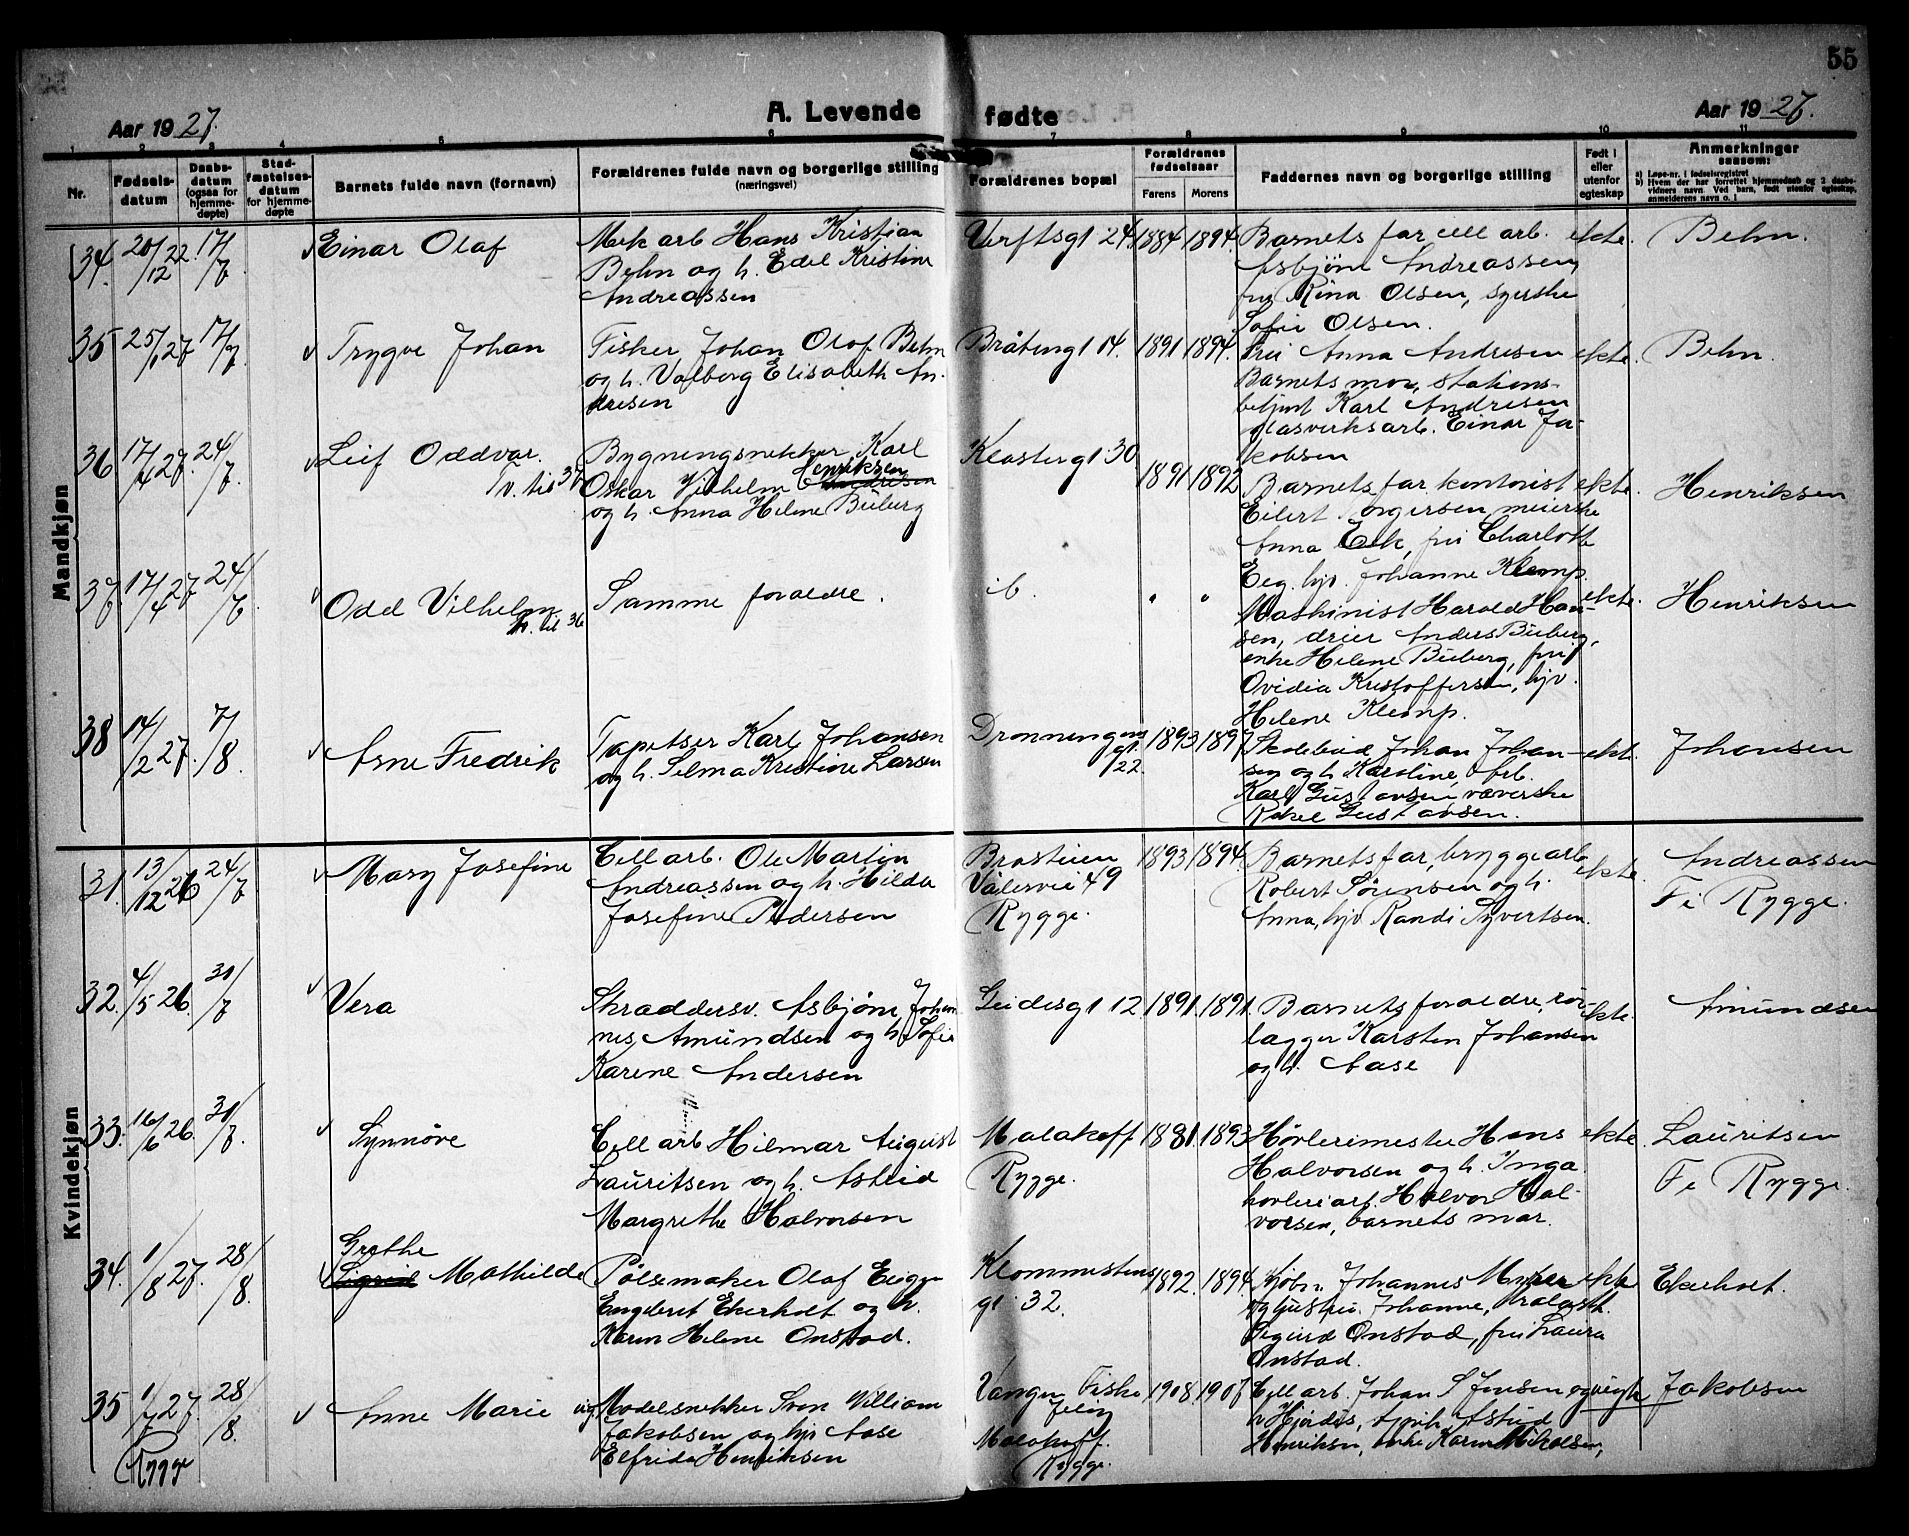 55
A. Levende fødte
Aar 1927.
Aar 1927.
1 2 3 4 5 6 7 8 9 10 11
Nr.
Fødsels-
datum
Daabs-
datum
(ogsaa for
hjemme-
døpte)
Stad-
fæstelses-
datum
for hjemme-
døpte
Barnets fulde navn (fornavn)
Forældrenes fulde navn og borgerlige stilling
(næringsvei)
Forældrenes bopæl
Forældrenes
fødselsaar
Farens Morens
Faddernes navn og borgerlige stilling
Født i
eller
utenfor
egteskap
Anmerkninger
saasom:
a) Løpe-nr. i fødselsregistret
b) Hvem der har forrettet hjemmedaab og 2 daabs-
vidners navn. Ved barn, født utenfor egteskap,
anmelderens navn o. l
Mandkjøn
34. 20/12 22 17/7
Einar Olaf
Mek arb Hans Kristian
Behn og h. Edel Kristine
Andreassen
Verftsgt 24. 1884 1894.
Barnets far, cell arb.
Asbjørn Andreassen,
fru Rina Olsen, syerske
Sofie Olsen.
ekte. Behn.
35 25/1 27 17/7
Trygve Johan
Fisker Johan Olaf Behn
og h. Valborg Elisabeth An-
dresen
Bråtengt 14. 1891 1894.
Frü Anna Andresen
Barnets mor, stations-
betjent Karl Andresen
glasverksarb. Einar Ja-
kobsen
ekte. Behn.
36 17/4 27. 24/7
Leif Oddvar.
Tv. til 37
Bygningsnekker Karl
Oskar Vilhelm Henriksen
og h. Anna Helene Büberg
Klostergt 30
1891. 1892
Barnets far, kontorist
Eilert Torgersen, meierske
Anna Eek, frü Charlotte
Eeg. hjv. Johanne Klemp.
ekte. Henriksen
37. 17/4 27 24/7
Odd Vilhelm
tv. til 36
Samme foraldre.
ib. " "
Maskinist Harald Han-
sen, dreier Anders Büberg,
enke Helene Büberg, frü
Ovidia Kristoffersen, hjv.
Helene Klemp.
ekte. Henriksen
38 14/2 27. 7/8
Arne Fredrik
Tapetser Karl Johansen
og h. Selma Kristine Larsen
Dronningens
gt.
22. 1893 1897
Skolebud Johan Johan-
sen og h Karoline, arb.
Karl Gustavsen, væverske
Rakel Gustavsen.
ekte. Johansen
Kvindekjøn
31. 13/12 26 24/7
Mary Josefine
Cell arb. Ole Martin
Andreassen og h. Hilda
Josefine Pedersen
Brostuen
Vålervei 49
Rygge. 1893 1894.
Barnets far, bryggearb
Robert Sørensen og h.
Anna, hjv Randi Syvertsen.
ekte. Andreassen
Fr Rygge.
32. 4/5 26. 31/7
Vera
Skræddersv. Asbjørn Johan-
nes Amundsen og h. Sofie
Karine Andersen
Guidesgt 12 1891. 1891.
Barnets foraldre, rør-
lægger Karsten Johansen
og h. Aase
ekte. Amundsen
33. 16/6 26. 31/7
Synnøve
Cell arb Hilmar August
Lauritsen og h. Astrid
Margrethe Halvorsen
Malakoff
Rygge. 1881. 1893
Høvlerimester Hans
Halvorsen og h. Inga.
høvleriarb. Halvor Hal-
vorsen, barnets mor.
ekte. Lauritsen
Fr Rygge.
34. 1/8 27. 28/8.
Grethe
Sigrid Mathilde
Pølsemaker Olaf Eugen
Engebret Ekerholt og h.
Karin Helene Onstad.
Klommestens
gt 32. 1892. 1894.
Kjøbm. Johannes Meyer
og hustru Johanne,
Sigurd Onstad, frü Laura
Onstad.
ekte Ekerholt.
35 1/7 27. 28/8.
Rygge
Anne Marie
uig.
Modelsnekker Sven William
Jakobsen og hjv Aase
Elfrida Henriksen
Vangen Fiske
Jeløy
Malakoff.
Rygge. 1908. 1907
Cell arb. Johan S Jensen og
h Hjørdis, Astrid
Henriksen, enke Karin Mikalsen,
uegte Jakobsen